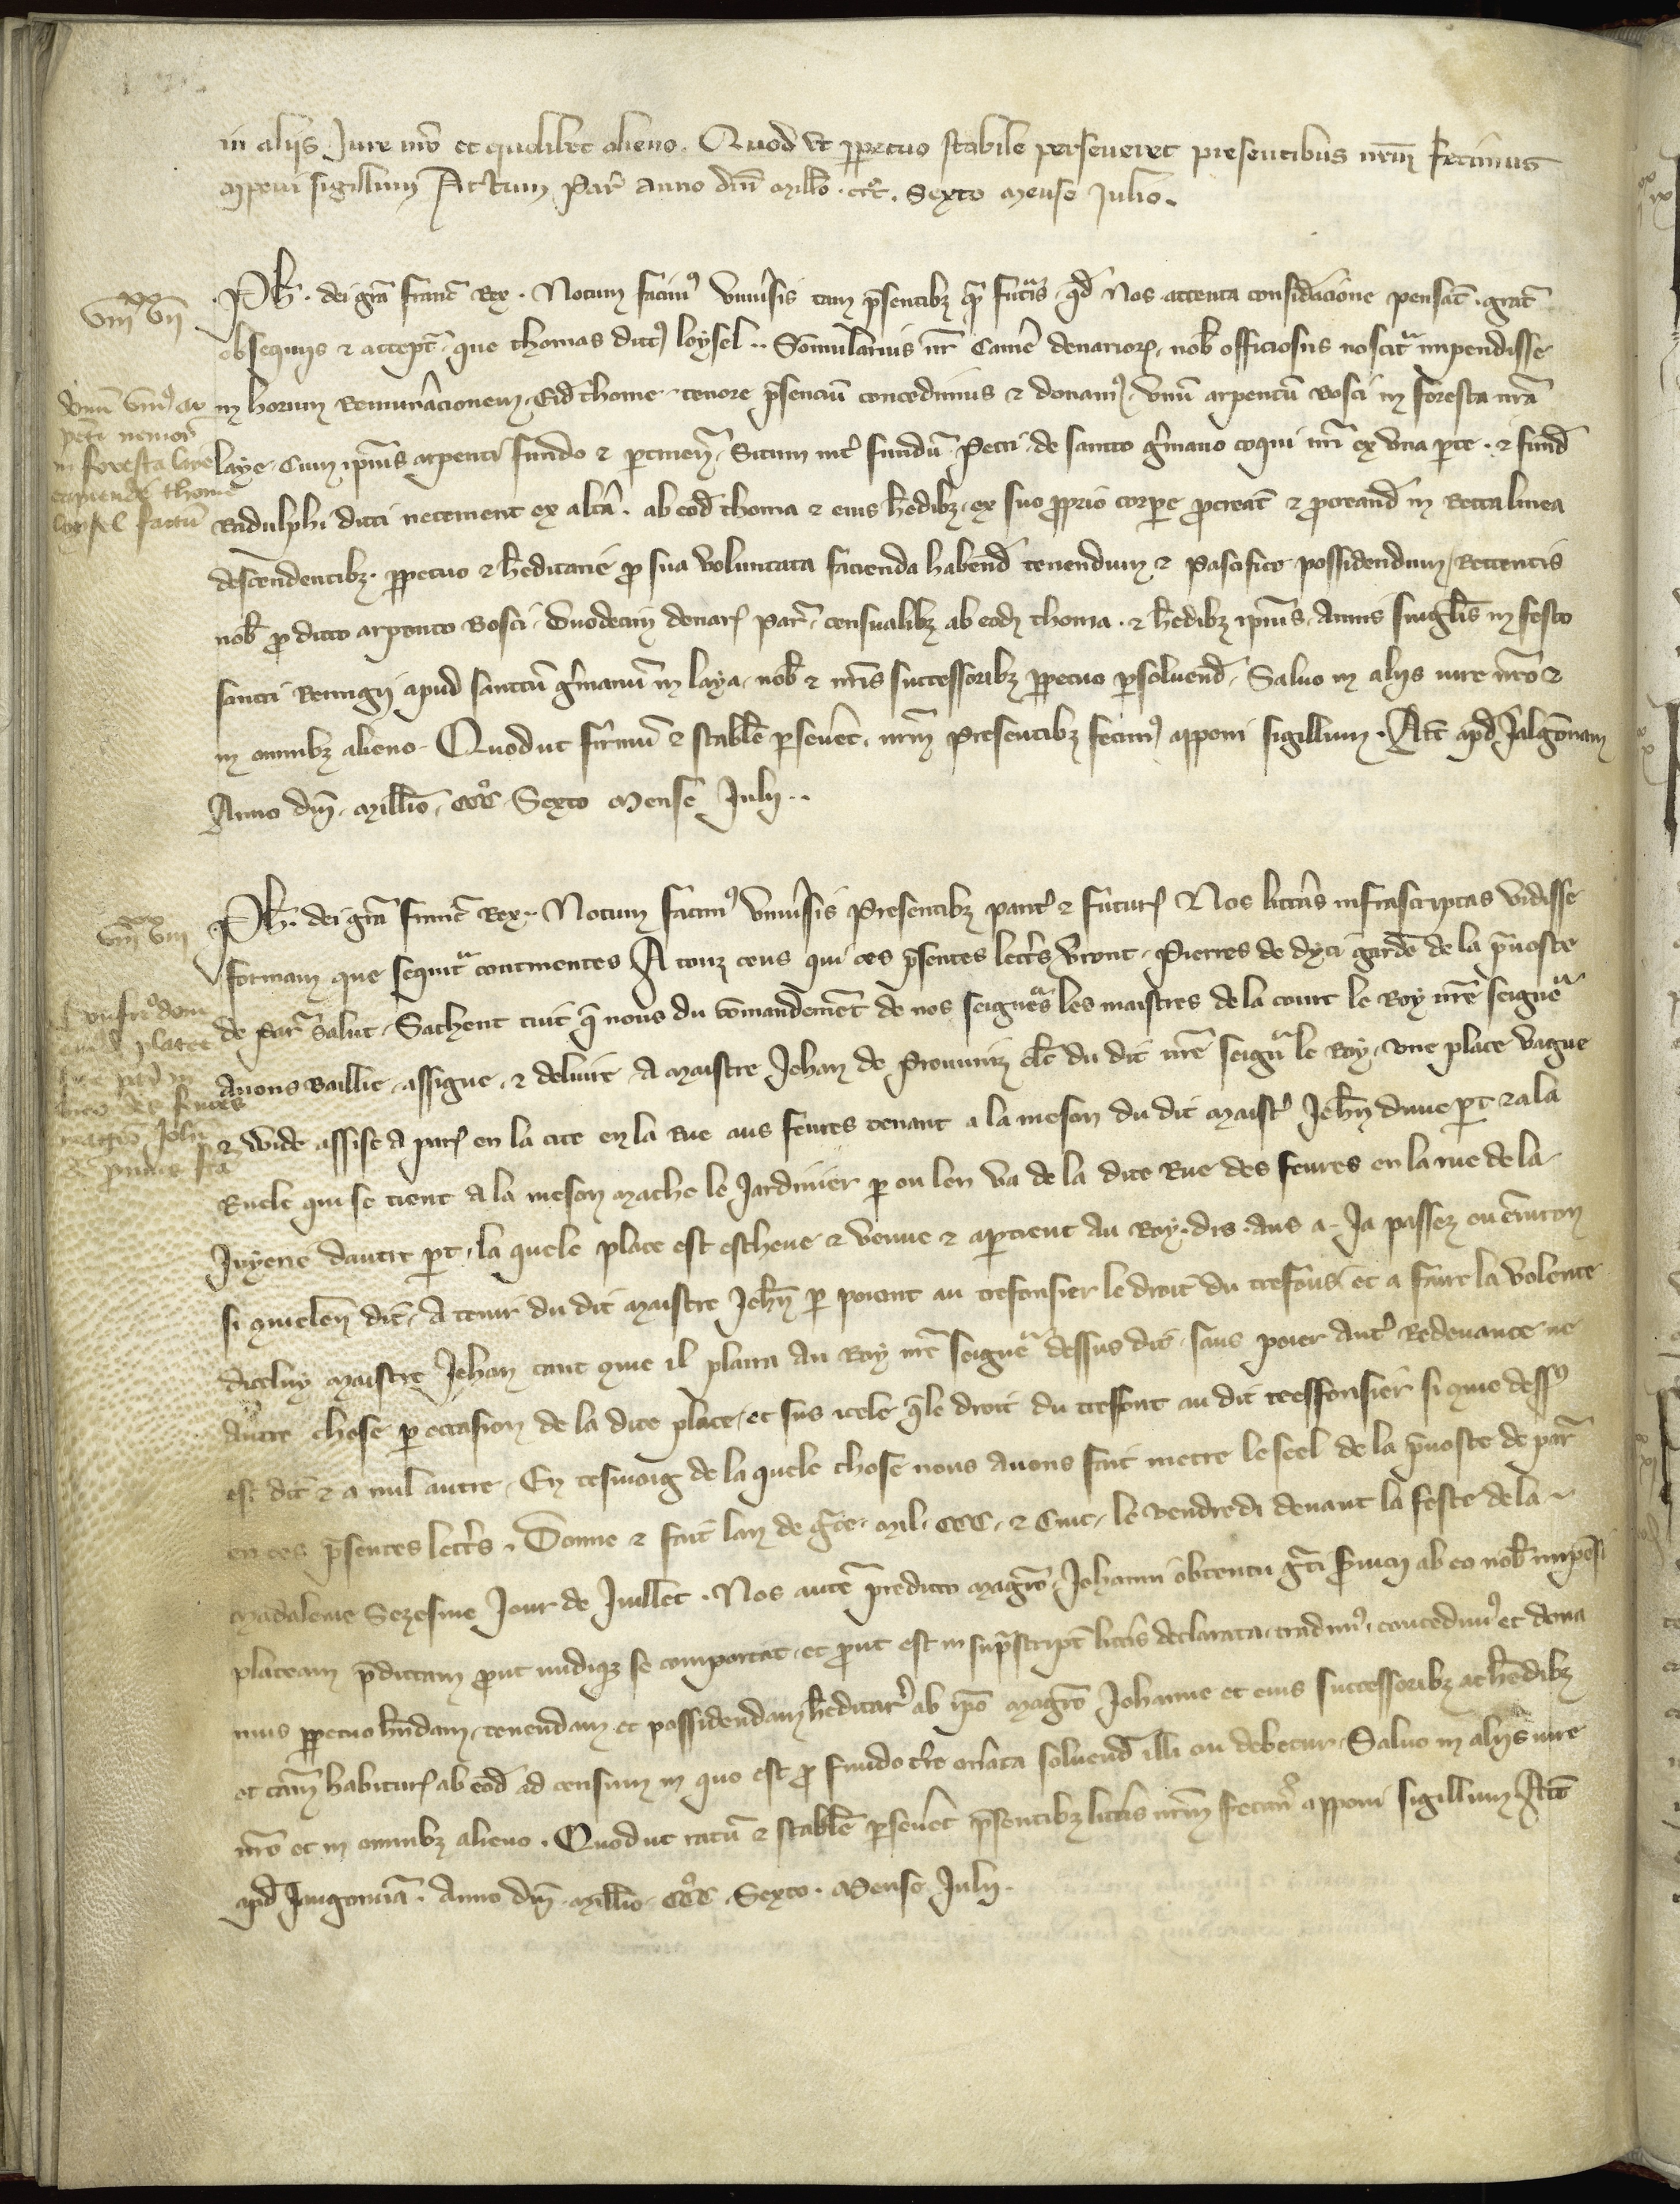 in aliis Jure nr̄o et quolibet alieno. Quod ut ꝑpetuo stabile perseveret presentibus nr̄m fecimus
apponi sigillum Actum Par̄ anno dn̄i mill̄o ccc°. sexto mense Julio.
Ph̄. dei gr̄a franc̄ Rex. Notum facimꝰ univ̄sis tam p̄sentibꝫ qͣm futur̄is qd̄ Nos attenta considac̄ione pensat̄. grat̄
obsequiis ⁊ accept̄. que thomas dictꝰ loysel.. Som̄ularius nr̄ Cam̄e denarioꝝ. nob̄ officiosus noscitᷣ impendisse
in horum Remun̄acionem. Eid̄ thome tenore p̄senciū concedimus ⁊ donamꝰ. unū arpentū bosci in foresta nr̄a
laye. Cum ip̄ius arpenti fundo ⁊ ꝑtinen̄. Situm int̄ fundū Petri de sancto ḡmano coqui nr̄i ex una ꝑte. ⁊ fund̄
Radulphi dicti netement ex altā. ab eod̄ thoma ⁊ eius h̄edibꝫ. ex suo ꝓprio corpore ꝓcreat̄ ⁊ ꝓcreand̄ in Recta linea
descendentibꝫ. ꝑpetuo ⁊ h̄editarie ꝓ sua voluntata facienda habend̄ tenendum ⁊ Pascifice possidendum. Retentis
nob̄ ꝓ dicto arpento bosci. duodecim denar̄ Par̄. censualibꝫ ab eod̄ thoma. ⁊ h̄edibꝫ ip̄ius. Annis singul̄is in festo
sancti Remigii apud sanctū ḡmanū in laya. nob̄ ⁊ nr̄is successoribꝫ ꝑpetuo ꝑsolvend̄. Salvo in aliis iure nr̄o ⁊
in omnibꝫ alieno. Quod ut firmū ⁊ stabile ꝑsev̄et. nr̄m Presentibꝫ fecimꝰ apponi sigillum. Act̄ apd̄ Jalgōnam
Anno dn̄i. Mill̄io. CCC°. Sexto Mense Julii..
Ph̄. dei gr̄a franc̄ Rex. Notum facimꝰ univ̄sis Presentibꝫ parit̄ ⁊ futur̄ Nos litt̄as infrascriptas vidisse
formam que sequitᷣ continentes A touz ceus qui ces p̄sentes lettr̄s v̄ront. Pierres de dyci garde de la p̄voste
de Par̄ Salut. Sachent tuit q̄ nous du com̄andement de nos seigneurs les maistres de la court le Roy nr̄e seigneᷣ
Avons baillie. assigne. ⁊ delivre. A maistre Jehan de Prouvin cl̄c du dit nr̄e seigneᷣ le Roy. une place vague
⁊ wide assise a par̄ en la cite en la Rue aus fevres tenant a la meson du dit maist̄ Jeh̄n dune ꝑt ⁊ a la
Ruele qui se tient a la meson mahe le Jardinier ꝑ ou len va de la dite Rue des fevres en la rue de la
Juyerie dautre ꝑt. la quele place est escheue ⁊ venue ⁊ apartient au Roy. dis. ans a. Ja passez ou environ
si que len dit. A tenir du dit maistre Jeh̄n ꝑ poiant au trefonsier le droit du trefons et a faire la volente
dicelluy maistre Jehan tant que il plaira au Roy nr̄e seigneᷣ dessus dit. sans poier aut̄ Redevance ne
autre chose ꝑ occasion de la dite place. et sus icele q̄ le droit du tresfont au dit tresfonsier si que dessꝰ
est dit ⁊ a nul autre. En tesmoig de la quele chose nous avons fait metre le seel de la p̄voste de par̄
en ces p̄sentes lettr̄s. Donne ⁊ fait lan de gr̄ce. mil. CCC. ⁊ Cinc. le vendredi devant la feste de la
Madaleine Sezesme Jour de Juillet. Nos aut̄ predicto magr̄o. Johanni obtentu gr̄ati s̄viciī ab eo nob̄ impēsi
plateam p̄dictam ꝓut undiqꝫ se comportat. et ꝓut est in sup̄script̄ litt̄is declarata. tradimꝰ. concedimꝰ et dona
mus ꝑpetuo h̄ndam. tenendam et possidendam h̄editar̄ ab ip̄o magr̄o Johanne et eius successoribꝫ ac h̄edibꝫ
et cām habitur̄ ab eod̄ ad censum in quo est ꝓ fundo t̄re on̄ata solvend̄ illi cui debetur. Salvo in aliis iure
nr̄o et in omnibꝫ alieno. Quod ut ratū ⁊ stabile ꝑsev̄et p̄sentibꝫ litt̄is nr̄m fecimꝰ apponi sigillum Act̄
apd̄ Jaugonciā. Anno dn̄i. Mill̄io CCC° Sexto. Mense Julii.
viiˣˣ vii
donū uniꝰ ar
penti nemoris
in foresta laye
thome
loysel factū
viiˣˣ viii
platee
des fevres
magr̄o Joh̄